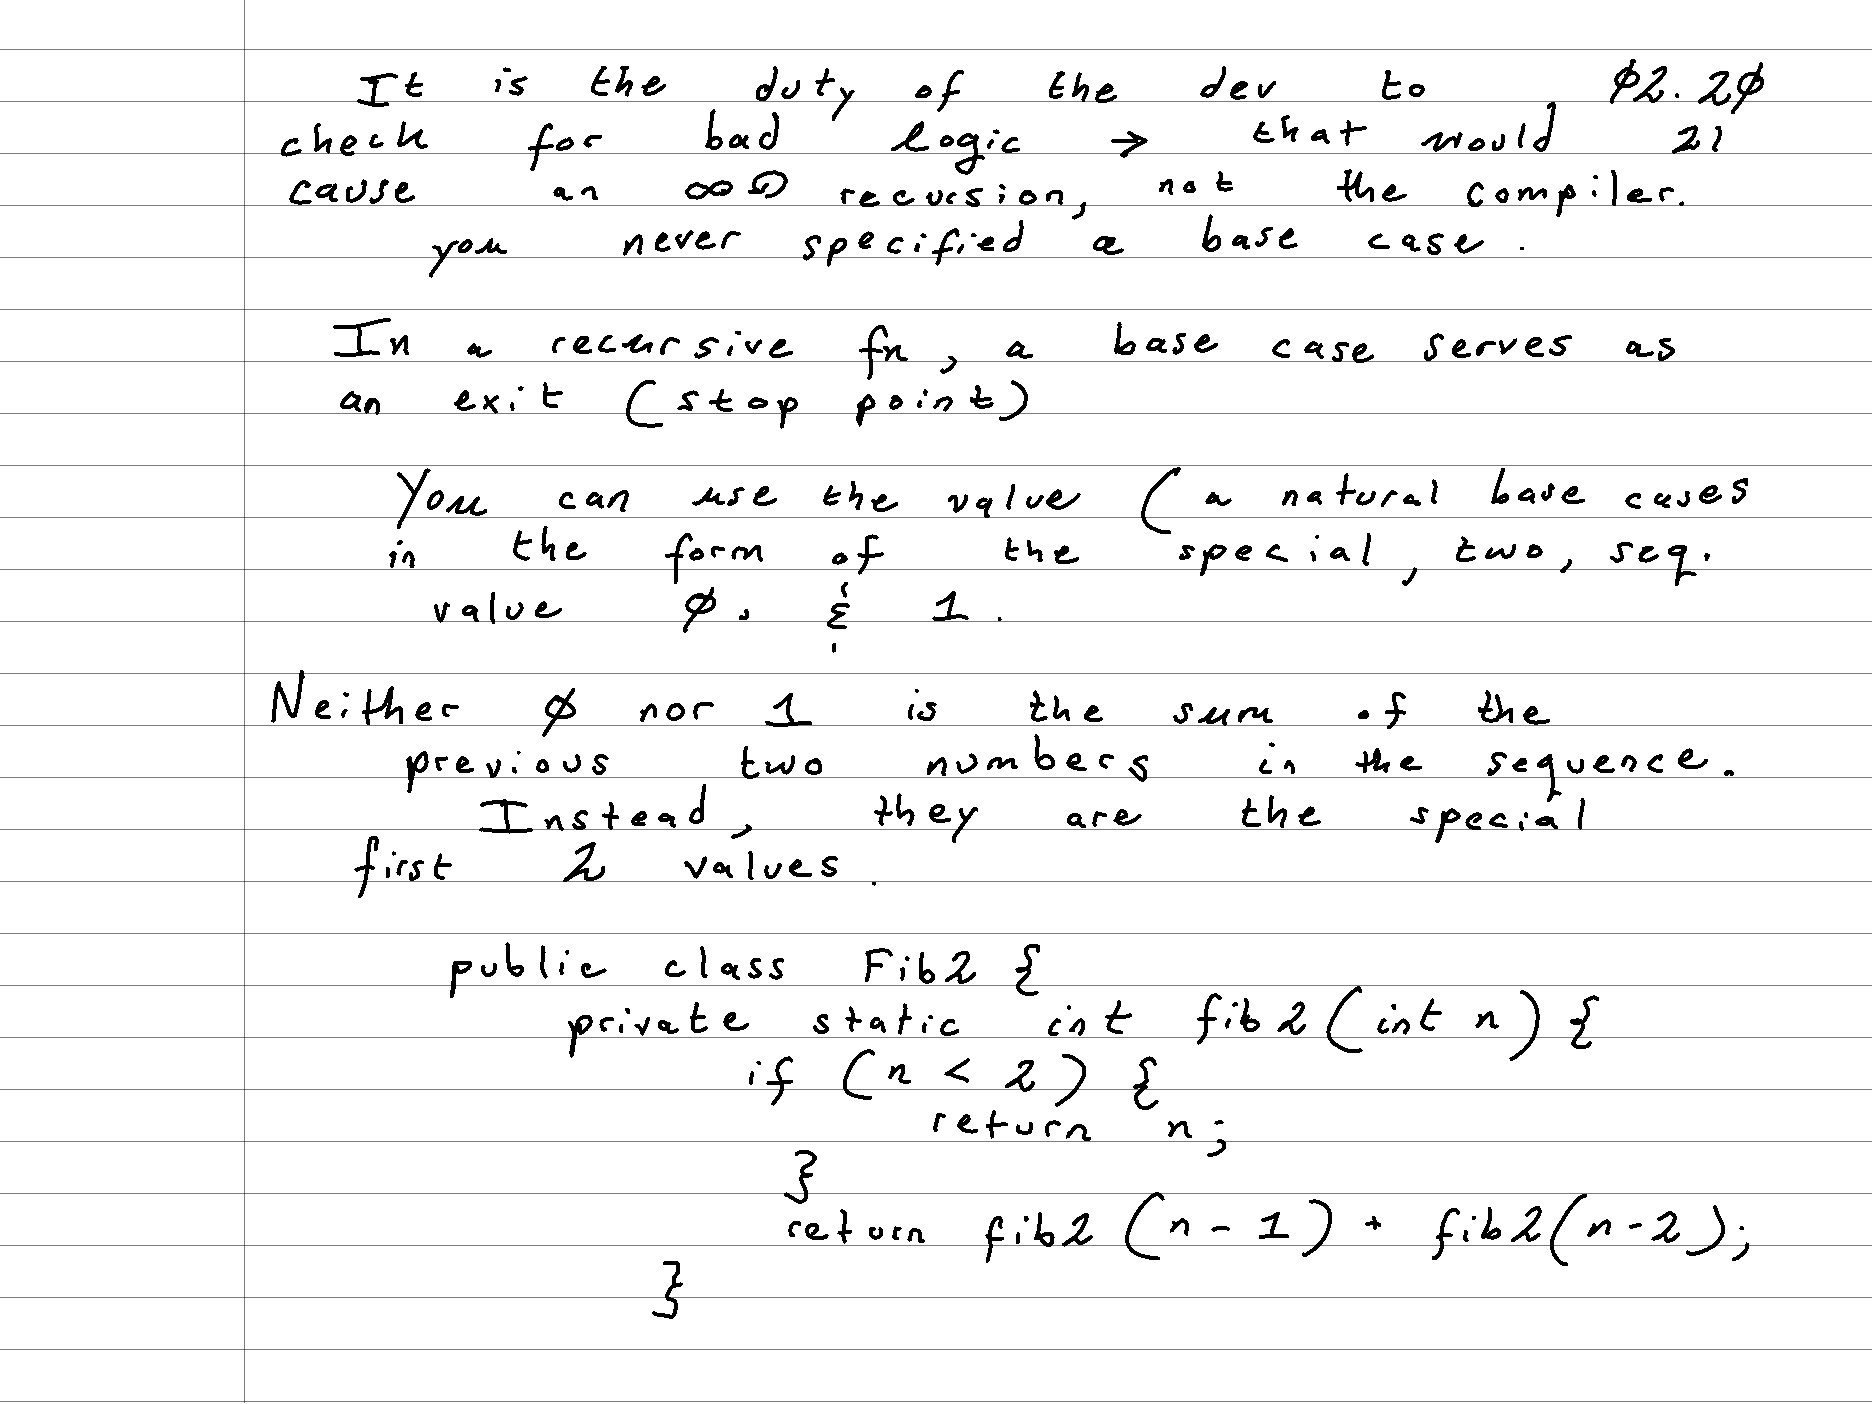 It is the duty of the dev to 02.20
check for bad logic → that would 21
cause an ∞ recursion, not the compiler.
you never specified a base case.
In a recursive fn, a base case serves as
an exit (stop point)
You can use the value (a natural base cases
in the form of the special, two, seq.
value 0. & 1.
Neither 0 nor 1 is the sum of the
previous two numbers in the sequence.
Instead, they are the special
first 2 values.
public class Fib2 {
private static int fib2(int n) {
if (n < 2) {
return n;
}
return fib2 (n - 1) + fib2(n-2);
}